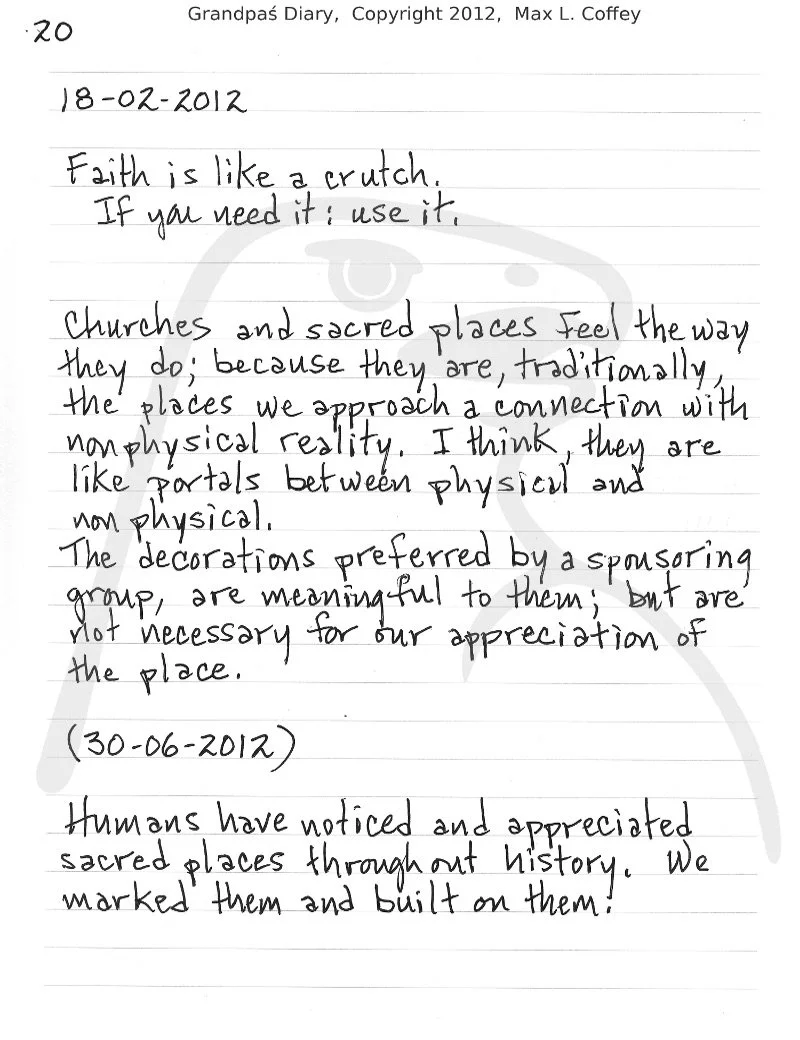 Grandpaś Diary, Copyright 2012, Max L. Coffey
20
18-02-2012
Faith is like a crutch.
If you need it: use it.
Churches and sacred places feel the way
they do; because they are, traditionally,
the places we approach a connection with
nonphysical reality. I think, they are
like portals between physical and
non physical.
The decorations preferred by a sponsoring
group, are meaningful to them; but are
not necessary for our appreciation of
the place.
(30-06-2012)
Humans have noticed and appreciated
sacred places throughout history. We
marked them and built on them!